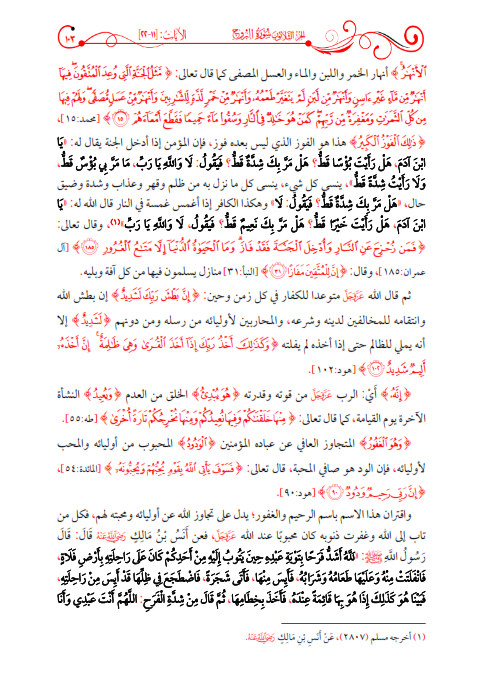 الآيات: [١١-٢٢]
الجزء الثلاثون سورة البروج
١٠٣
﴿الْأَنْهَارُ﴾ أنهار الخمر واللبن والماء والعسل المصفى كما قال تعالى: ﴿مَثَلُ الْجَنَّةِ الَّتِي وُعِدَ الْمُتَّقُونَ فِيهَا
أَنْهَارٌ مِّن مَّاءٍ غَيْرِ ءَاسِنٍ وَأَنْهَارٌ مِّن لَّبَنٍ لَّمْ يَتَغَيَّرْ طَعْمُهُ وَأَنْهَارٌ مِّنْ خَمْرٍ لَّذَّةٍ لِّلشَّارِبِينَ وَأَنْهَارٌ مِّنْ عَسَلٍ مُّصَفًّى وَلَهُمْ فِيهَا
مِن كُلِّ الثَّمَرَاتِ وَمَغْفِرَةٌ مِّن رَّبِّهِمْ كَمَنْ هُوَ خَالِدٌ فِي النَّارِ وَسُقُوا مَاءً حَمِيمًا فَقَطَّعَ أَمْعَاءَهُمْ ١٥﴾ [محمد:١٥]،
﴿ذَلِكَ الْفَوْزُ الْكَبِيرُ﴾ هذا هو الفوز الذي ليس بعده فوز، فإن المؤمن إذا أدخل الجنة يقال له: «يَا
ابْنَ آدَمَ، هَلْ رَأَيْتَ بُؤْسًا قَطُّ؟ هَلْ مَرَّ بِكَ شِدَّةٌ قَطُّ؟ فَيَقُولُ: لَا وَاللهِ يَا رَبِّ، مَا مَرَّ بِي بُؤْسٌ قَطُّ،
وَلَا رَأَيْتُ شِدَّةً قَطُّ»، ينسى كل شيء، ينسى كل ما نزل به من ظلم وقهر وعذاب وشدة وضيق
حال، «هَلْ مَرَّ بِكَ شِدَّةٌ قَطُّ؟ فَيَقُولُ: لَا» وهكذا الكافر إذا أغمس غمسة في النار قال الله له: «يَا
ابْنَ آدَمَ، هَلْ رَأَيْتَ خَيْرًا قَطُّ؟ هَلْ مَرَّ بِكَ نَعِيمٌ قَطُّ؟ فَيَقُولُ، لَا وَاللهِ يَا رَبِّ»(١)، وقال تعالى:
﴿فَمَن زُحْزِحَ عَنِ النَّارِ وَأُدْخِلَ الْجَنَّةَ فَقَدْ فَازَ وَمَا الْحَيَوٰةُ الدُّنْيَا إِلَّا مَتَاعُ الْغُرُورِ ١٨٥﴾ [آل
عمران:١٨٥]، وقال: ﴿إِنَّ لِلْمُتَّقِينَ مَفَازًا ٣١﴾ [النبأ:٣١] منازل يسلمون فيها من كل آفة وبلية.
ثم قال الله عَزَّوَجَلَّ متوعدا للكفار في كل زمن وحين: ﴿إِنَّ بَطْشَ رَبِّكَ لَشَدِيدٌ﴾ إن بطش الله
وانتقامه للمخالفين لدينه وشرعه، والمحاربين لأوليائه من رسله ومن دونهم ﴿لَشَدِيدٌ﴾ إلا
أنه يملي للظالم حتى إذا أخذه لم يفلته ﴿وَكَذَٰلِكَ أَخْذُ رَبِّكَ إِذَا أَخَذَ الْقُرَىٰ وَهِيَ ظَالِمَةٌ إِنَّ أَخْذَهُ
أَلِيمٌ شَدِيدٌ ١٠٢﴾ [هود:١٠٢].
﴿إِنَّهُ﴾ أَيْ: الرب عَزَّوَجَلَّ من قوته وقدرته ﴿هُوَ يُبْدِئُ﴾ الخلق من العدم ﴿وَيُعِيدُ﴾ النشأة
الآخرة يوم القيامة، كما قال تعالى: ﴿مِنْهَا خَلَقْنَاكُمْ وَفِيهَا نُعِيدُكُمْ وَمِنْهَا نُخْرِجُكُمْ تَارَةً أُخْرَىٰ﴾ [طه:٥٥].
﴿وَهُوَ الْغَفُورُ﴾ المتجاوز العافي عن عباده المؤمنين ﴿الْوَدُودُ﴾ المحبوب من أوليائه والمحب
لأوليائه، فإن الود هو صافي المحبة، قال تعالى: ﴿فَسَوْفَ يَأْتِي اللَّهُ بِقَوْمٍ يُحِبُّهُمْ وَيُحِبُّونَهُ﴾ [المائدة:٥٤]،
﴿إِنَّ رَبِّي رَحِيمٌ وَدُودٌ ٩٠﴾ [هود:٩٠].
واقتران هذا الاسم باسم الرحيم والغفور؛ يدل على تجاوز الله عن أوليائه ومحبته لهم، فكل من
تاب إلى الله وغفرت ذنوبه كان محبوبًا عند الله عَزَّوَجَلَّ، فعن أَنَسُ بْنُ مَالِكٍ رَضِيَ اللَّهُ عَنْهُ قَالَ: قَالَ
رَسُولُ اللهِ ﷺ: «لَلَّهُ أَشَدُّ فَرَحًا بِتَوْبَةِ عَبْدِهِ حِينَ يَتُوبُ إِلَيْهِ مِنْ أَحَدِكُمْ كَانَ عَلَى رَاحِلَتِهِ بِأَرْضِ فَلَاةٍ،
فَانْفَلَتَتْ مِنْهُ وَعَلَيْهَا طَعَامُهُ وَشَرَابُهُ، فَأَيِسَ مِنْهَا، فَأَتَى شَجَرَةً، فَاضْطَجَعَ فِي ظِلِّهَا قَدْ أَيِسَ مِنْ رَاحِلَتِهِ،
فَبَيْنَا هُوَ كَذَلِكَ إِذَا هُوَ بِهَا قَائِمَةً عِنْدَهُ، فَأَخَذَ بِخِطَامِهَا، ثُمَّ قَالَ مِنْ شِدَّةِ الْفَرَحِ: اللَّهُمَّ أَنْتَ عَبْدِي وَأَنَا
(١) أخرجه مسلم (٢٨٠٧)، عَنْ أَنَسِ بْنِ مَالِكٍ رَضِيَ اللَّهُ عَنْهُ.